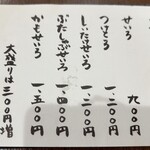 せいろ 九〇〇円
つけとろ 一、二〇〇円
しいたけせいろ 一、二〇〇円
ぶたしゃぶせいろ 一、四〇〇円
かもせいろ 一、五〇〇円
大盛りは三〇〇円増